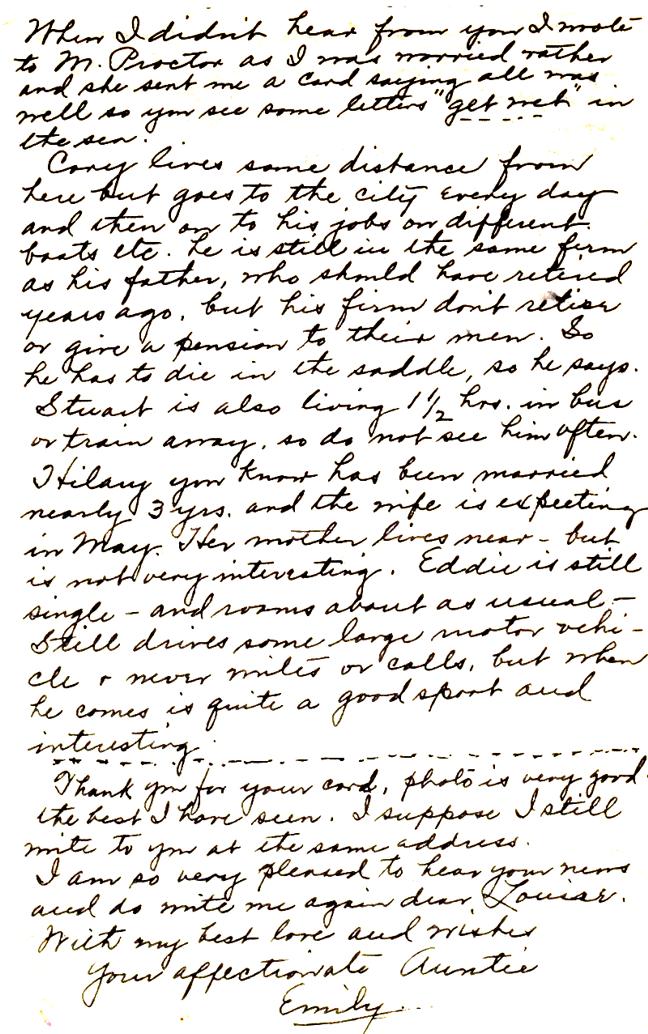 When I didn't hear from you I wrote
to M. Proctor as I was worried rather
and she sent me a card saying all was
well so you see some letters "get wet" in
the sea.
Corey lives some distance from
here but goes to the city every day
and then on to his jobs on different
boats etc. he is still in the same firm
as his father, who should have retired
years ago, but his firm don't retire
or give a pension to their men. So
he has to die in the saddle, so he says.
Stuart is also living 1 1/2 hrs. in bus
or train away, so do not see him often.
Hilary you know has been married
nearly 3 yrs. and the wife is expecting
in May. Her mother lives near - but
is not very interesting. Eddie is still
single - and roams about as usual -
Still drives some large motor vehi-
cle & never writes or calls, but when
he comes is quite a good sport and
interesting.
Thank you for your card, photo is very good
the best I have seen. I suppose I still
write to you at the same address.
I am so very pleased to hear your news
and do write me again dear Louise.
With my best love and wishes
Your affectionate Auntie
Emily.